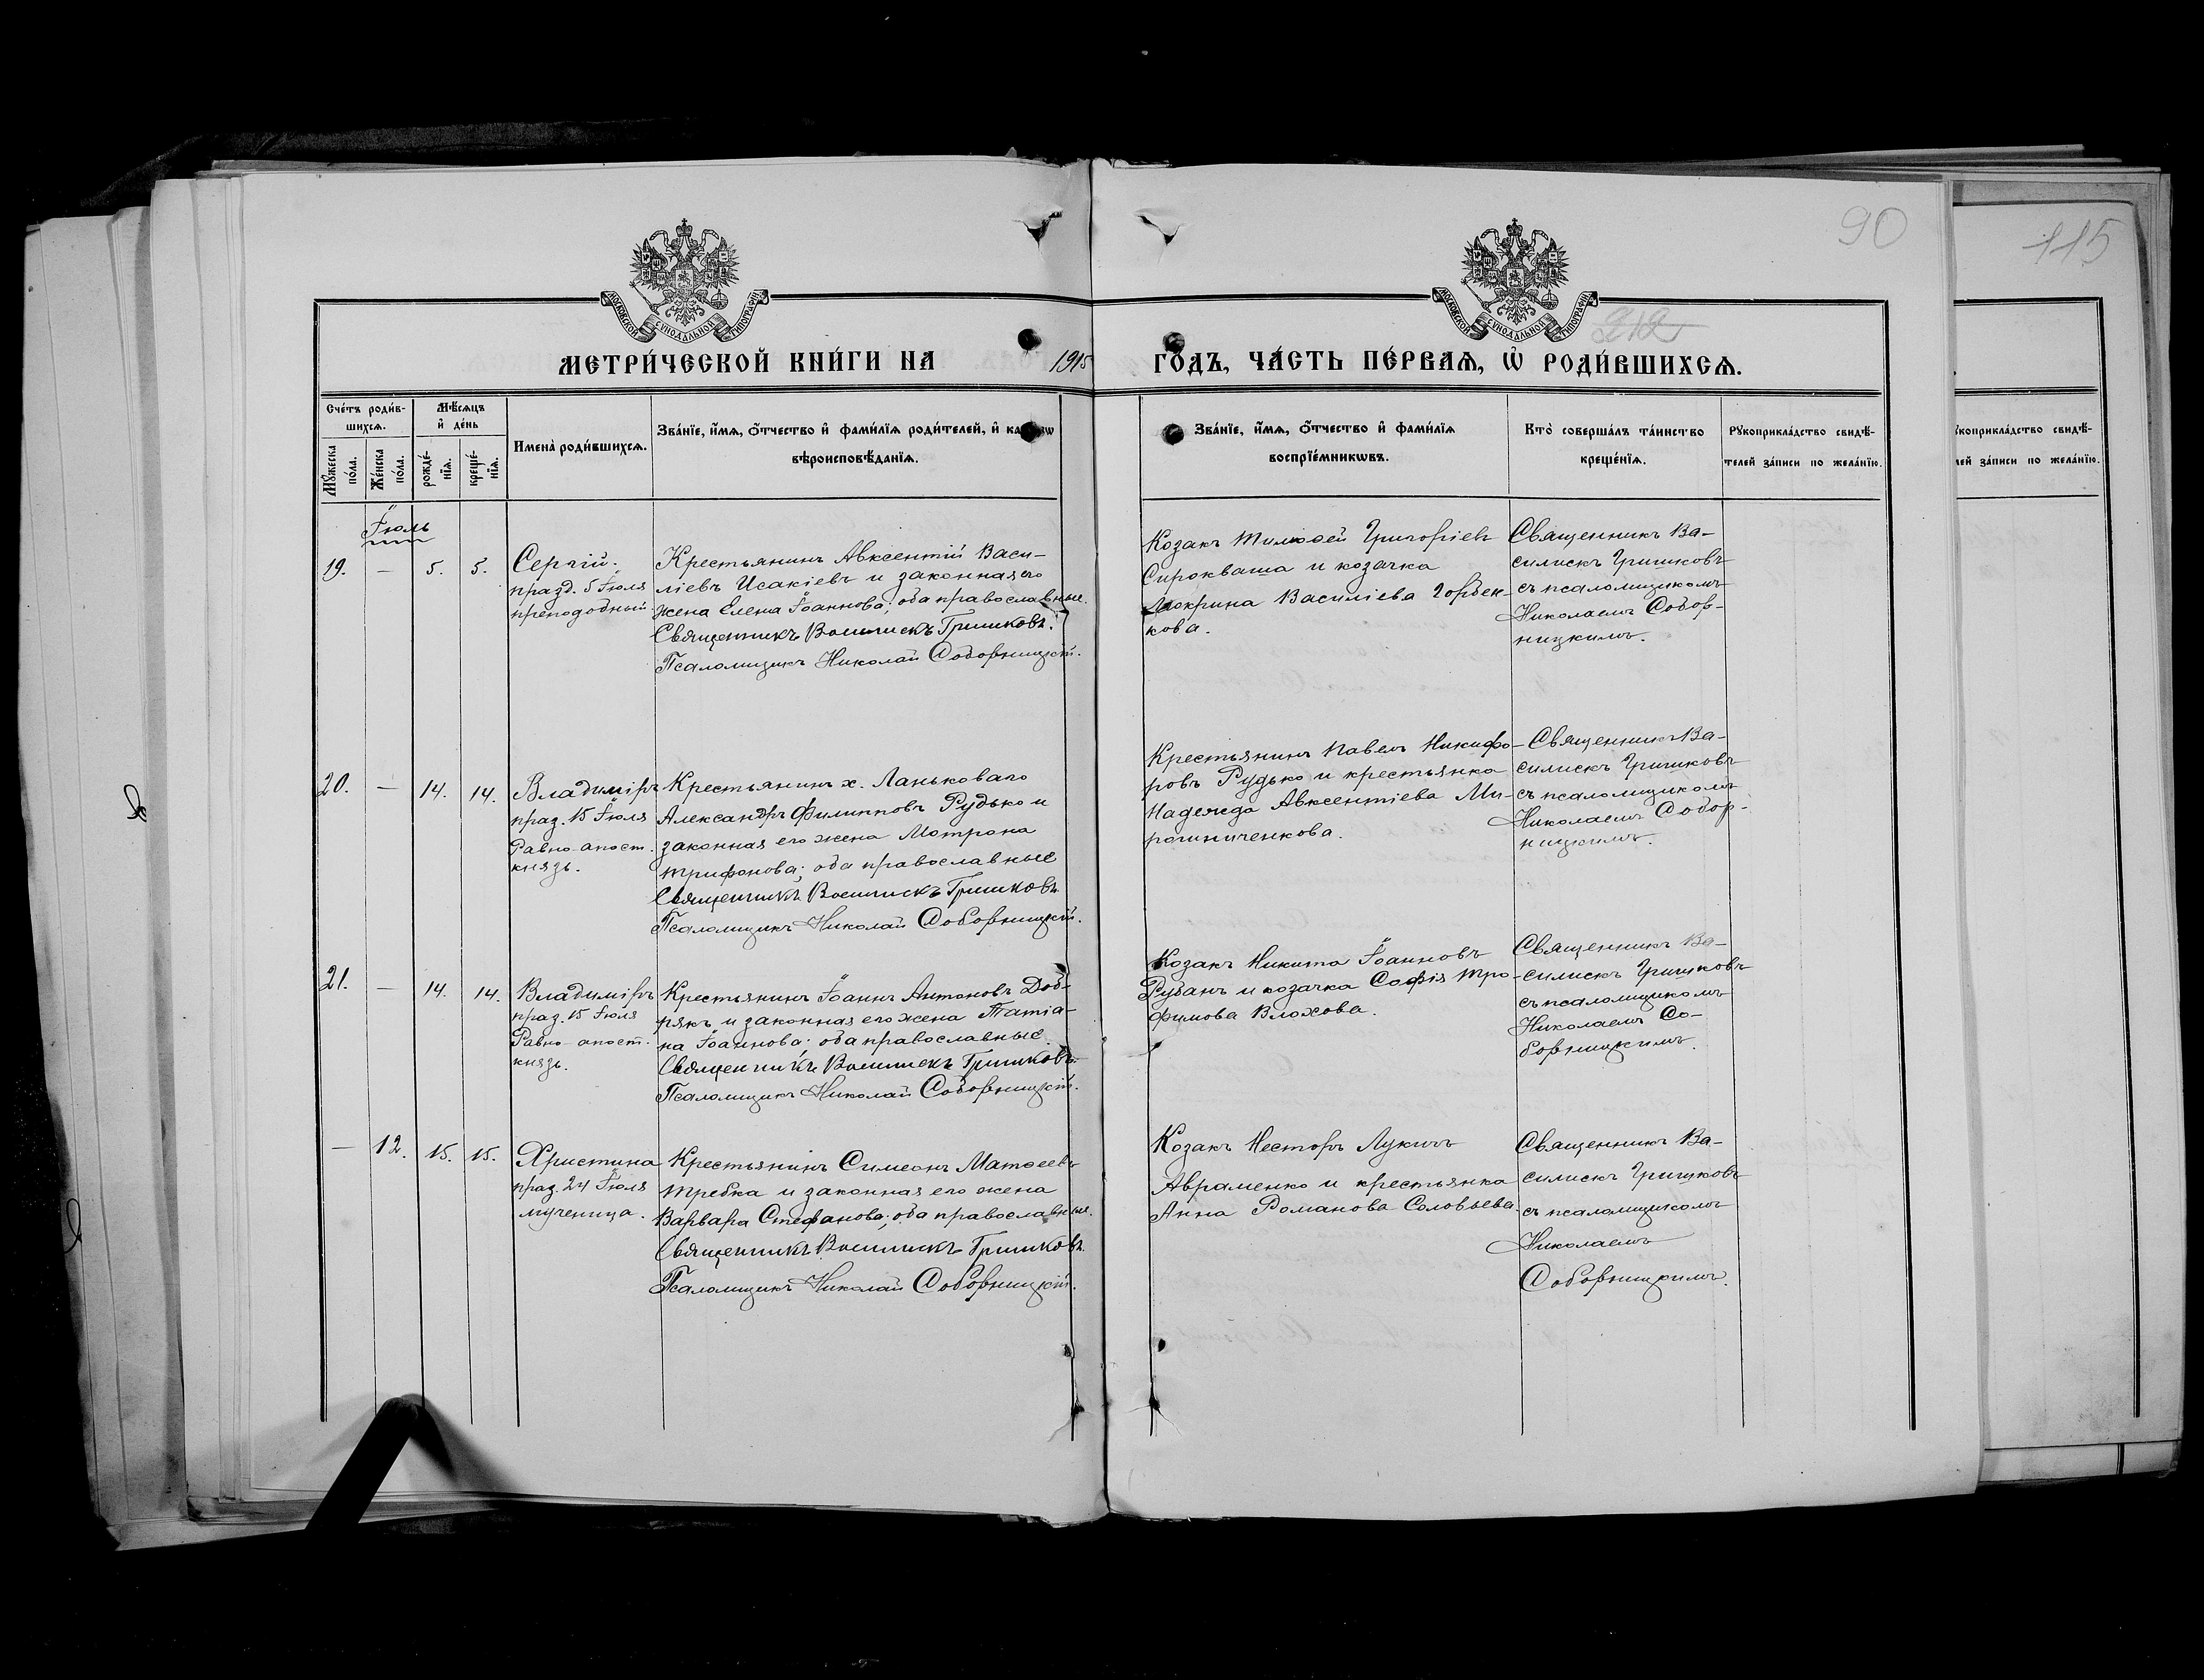 90
115
МОСКОВСКОЙ СѴНОДАЛЬНОЙ ТИПОГРАФІИ
МОСКОВСКОЙ СѴНОДАЛЬНОЙ ТИПОГРАФІИ
212
МЕТРИ́ЧЕСКОЙ КНИ́ГИ НА 1915 ГО́ДЪ, ЧА́СТЬ ПЕ́РВАѦ, Ѡ҆ РОДИ́ВШИХСѦ.
Сче́тъ роди́в-
шихсѧ.
Мѣ́сѧцъ
и҆ де́нь
Мꙋ́жеска
по́ла.
Же́нска
по́ла.
рожде́-
нїѧ.
креще́-
нїѧ.
Имена̀ роди́вшихсѧ.
Зва́нїе, и҆́мѧ, ѻ҆́тчество и҆ фами́лїѧ роди́телей, и҆
вѣроисповѣ́данїѧ.
Зва́нїе, и҆́мѧ, ѻ҆́тчество и҆ фами́лїѧ
воспрїе́мникѡвъ.
Кто̀ соверша́лъ та́инство
креще́нїѧ.
Рꙋкоприкла́дство свидѣ́-
телей за́писи по жела́нїю.
Іюль
19. — 5. 5.
Сергій.
празд. 5 Іюля
преподобный
Крестьянинъ Авксентій Васи-
ліевъ Исакіевъ и законная его
жена Елена Іоаннова; оба православные.
Священникъ Василискъ Гришковъ.
Псаломщикъ Николай Соборницкій.
Козакъ Тимоѳей Григоріевъ
Сирокваша и козачка
Мокрина Василіева Горбен-
кова.
Священникъ Ва-
силискъ Гришковъ
съ псаломщикомъ
Николаемъ Собор-
ницкимъ.
20. — 14. 14.
Владиміръ
праз. 15 Іюля
Равно-апост.
князь.
Крестьянинъ х. Ланьковаго
Александръ Филипповъ Рудько и
законная его жена Мотрона
Трифонова; оба православные
Священникъ Василискъ Гришковъ.
Псаломщикъ Николай Соборницкій.
Крестьянинъ Павелъ Никифо-
ровъ Рудько и крестьянка
Надежда Авксентіева Ми-
рошниченкова.
Священникъ Ва-
силискъ Гришковъ
съ псаломщикомъ
Николаемъ Собор-
ницкимъ.
21. — 14. 14.
Владиміръ
праз. 15 Іюля
Равно-апост.
князь.
Крестьянинъ Іоаннъ Антоновъ Доб-
рякъ и законная его жена Татіа-
на Іоаннова; оба православные.
Священникъ Василискъ Гришковъ.
Псаломщикъ Николай Соборницкій.
Козакъ Никита Іоанновъ
Рубанъ и козачка Софія Тро-
фимова Влохова.
Священникъ Ва-
силискъ Гришковъ
съ псаломщикомъ
Николаемъ Со-
борницкимъ.
— 12. 15. 15.
Христина
праз. 24 Іюля
мученица.
Крестьянинъ Симеонъ Матѳеевъ
Требка и законная его жена
Варвара Стефанова; оба православные.
Священникъ Василискъ Гришковъ.
Псаломщикъ Николай Соборницкій.
Козакъ Несторъ Лукичъ
Авраменко и крестьянка
Анна Романова Соловьева.
Священникъ Ва-
силискъ Гришковъ
съ псаломщикомъ
Николаемъ
Соборницкимъ.